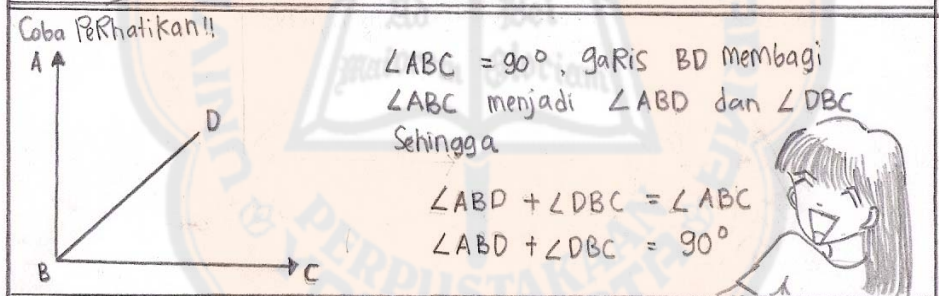 Coba Perhatikan!!
A
∠ABC = 90°, garis BD membagi
∠ABC menjadi ∠ABD dan ∠DBC
D
Sehingga
∠ABD + ∠DBC = ∠ABC
∠ABD + ∠DBC = 90°
B
C
PERPUSTAKAAN